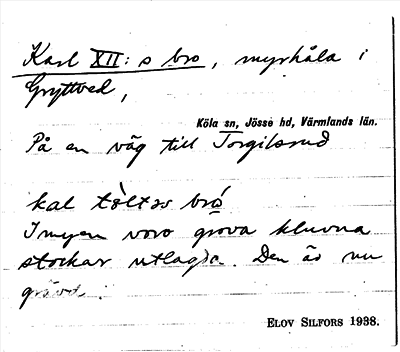 Karl XII:s bro, myrhåla i
Gryttved,
Köla sn, Jösse hd, Värmlands län.
På en väg till Torgilsrud
kal tòltəs bró
I myren voro grova kluvna
stockar utlagda. Den är nu
grävd.
ELOV SILFORS 1938.